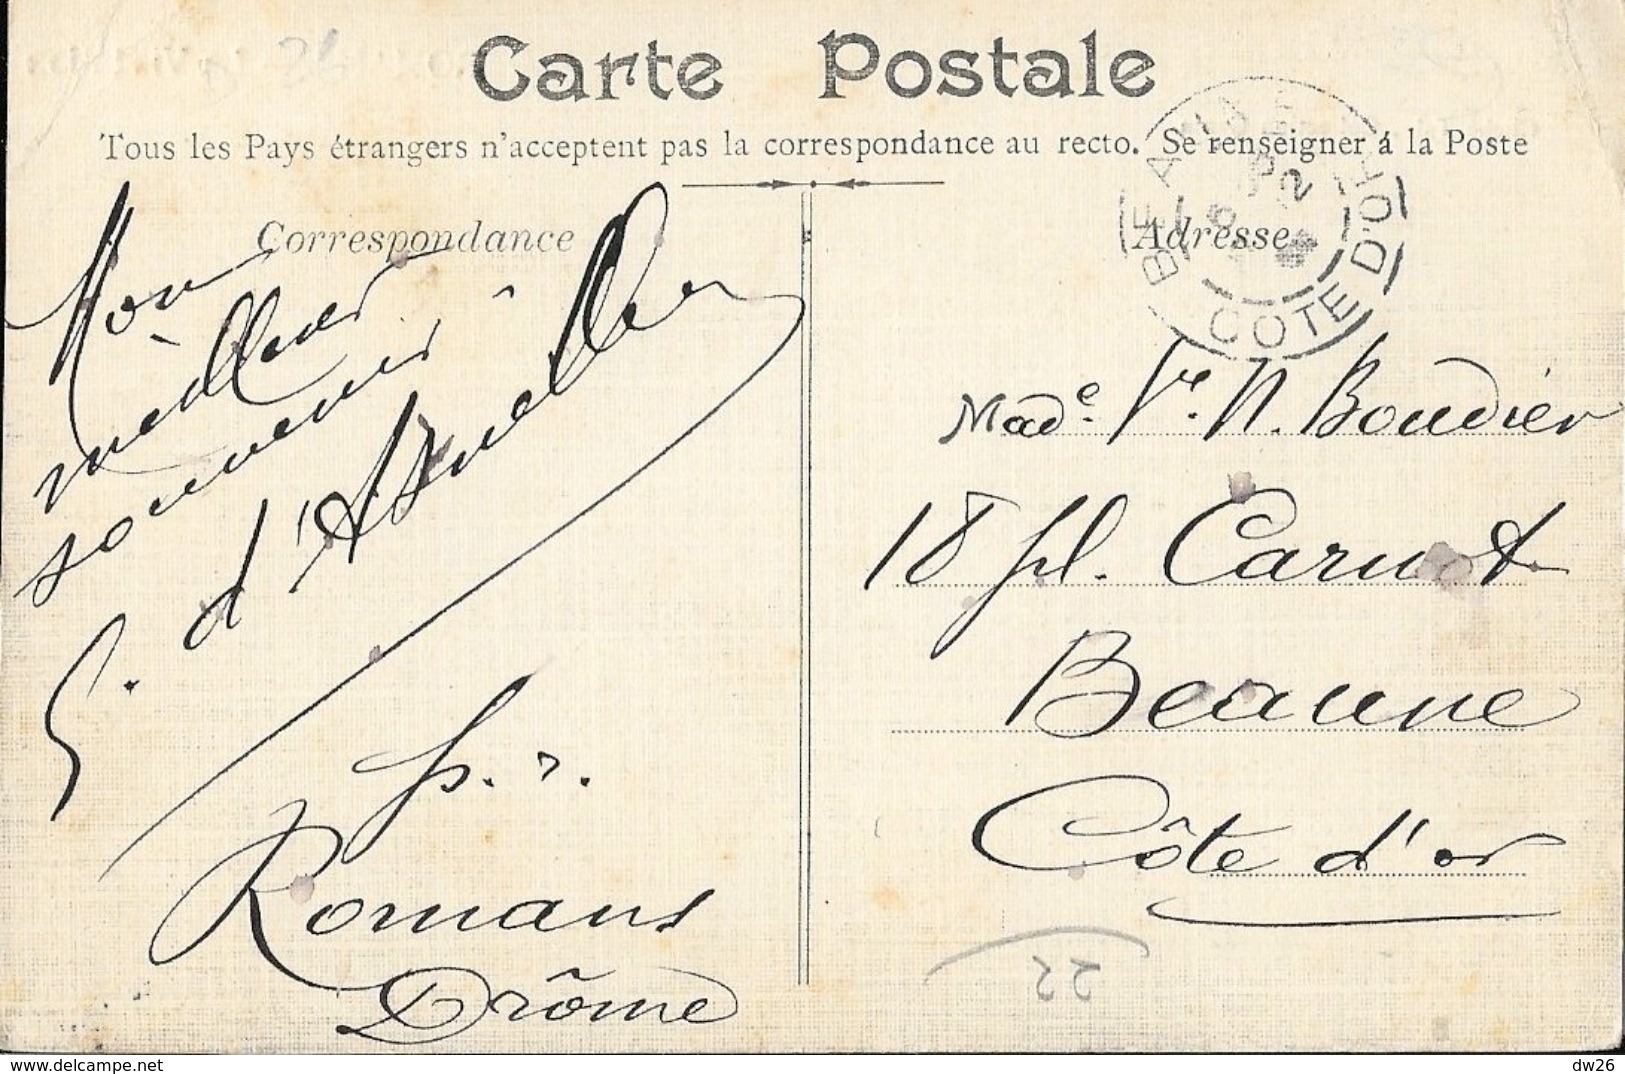 Carte Postale
Tous les Pays étrangers n'acceptent pas la correspondance au recto. Se renseigner á la Poste
Correspondance
Adresse
BEAUNE
COTE D'OR
Mon
meilleur
souvenir
p. r.
Romans
Drôme
Made. Vve. N. Boudier
18 pl. Carnot
Beaune
Côte d'or
22
www.delcampe.net
dw26